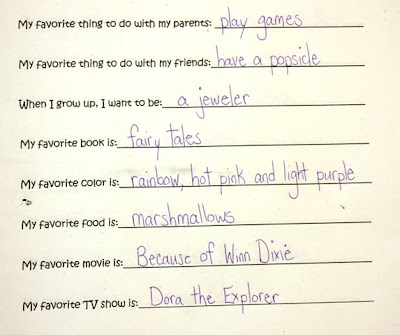 My favorite thing to do with my parents: play games
My favorite thing to do with my friends: have a popsicle
When I grow up, I want to be: a jeweler
My favorite book is: fairy tales
My favorite color is: rainbow, hot pink and light purple
My favorite food is: marshmallows
My favorite movie is: Because of Winn Dixie
My favorite TV show is: Dora the Explorer